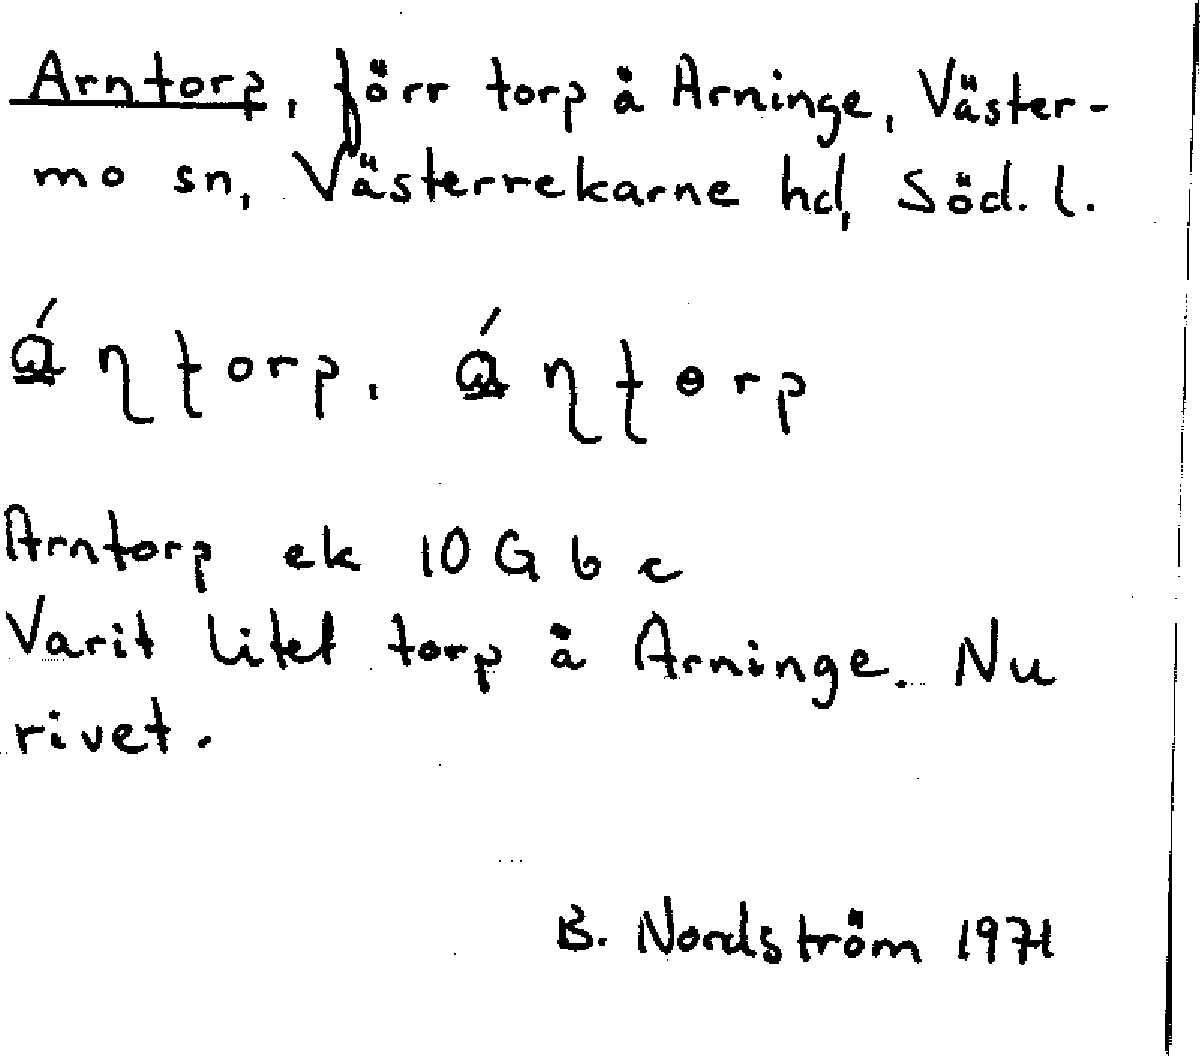 Arntorp, förr torp å Arninge, Väster-
mo sn, Västerrekarne hd, Söd. l.
ɑ́ɳʈorp, ɑ́ɳʈɵrp
Arntorp ek 10 G b c
Varit litet torp å Arninge. Nu
rivet.
B. Nordström 1971